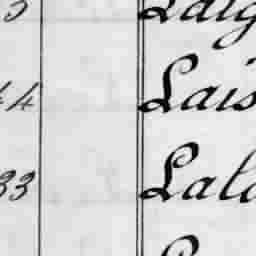 5 Laig
44 Lais
33 Lala